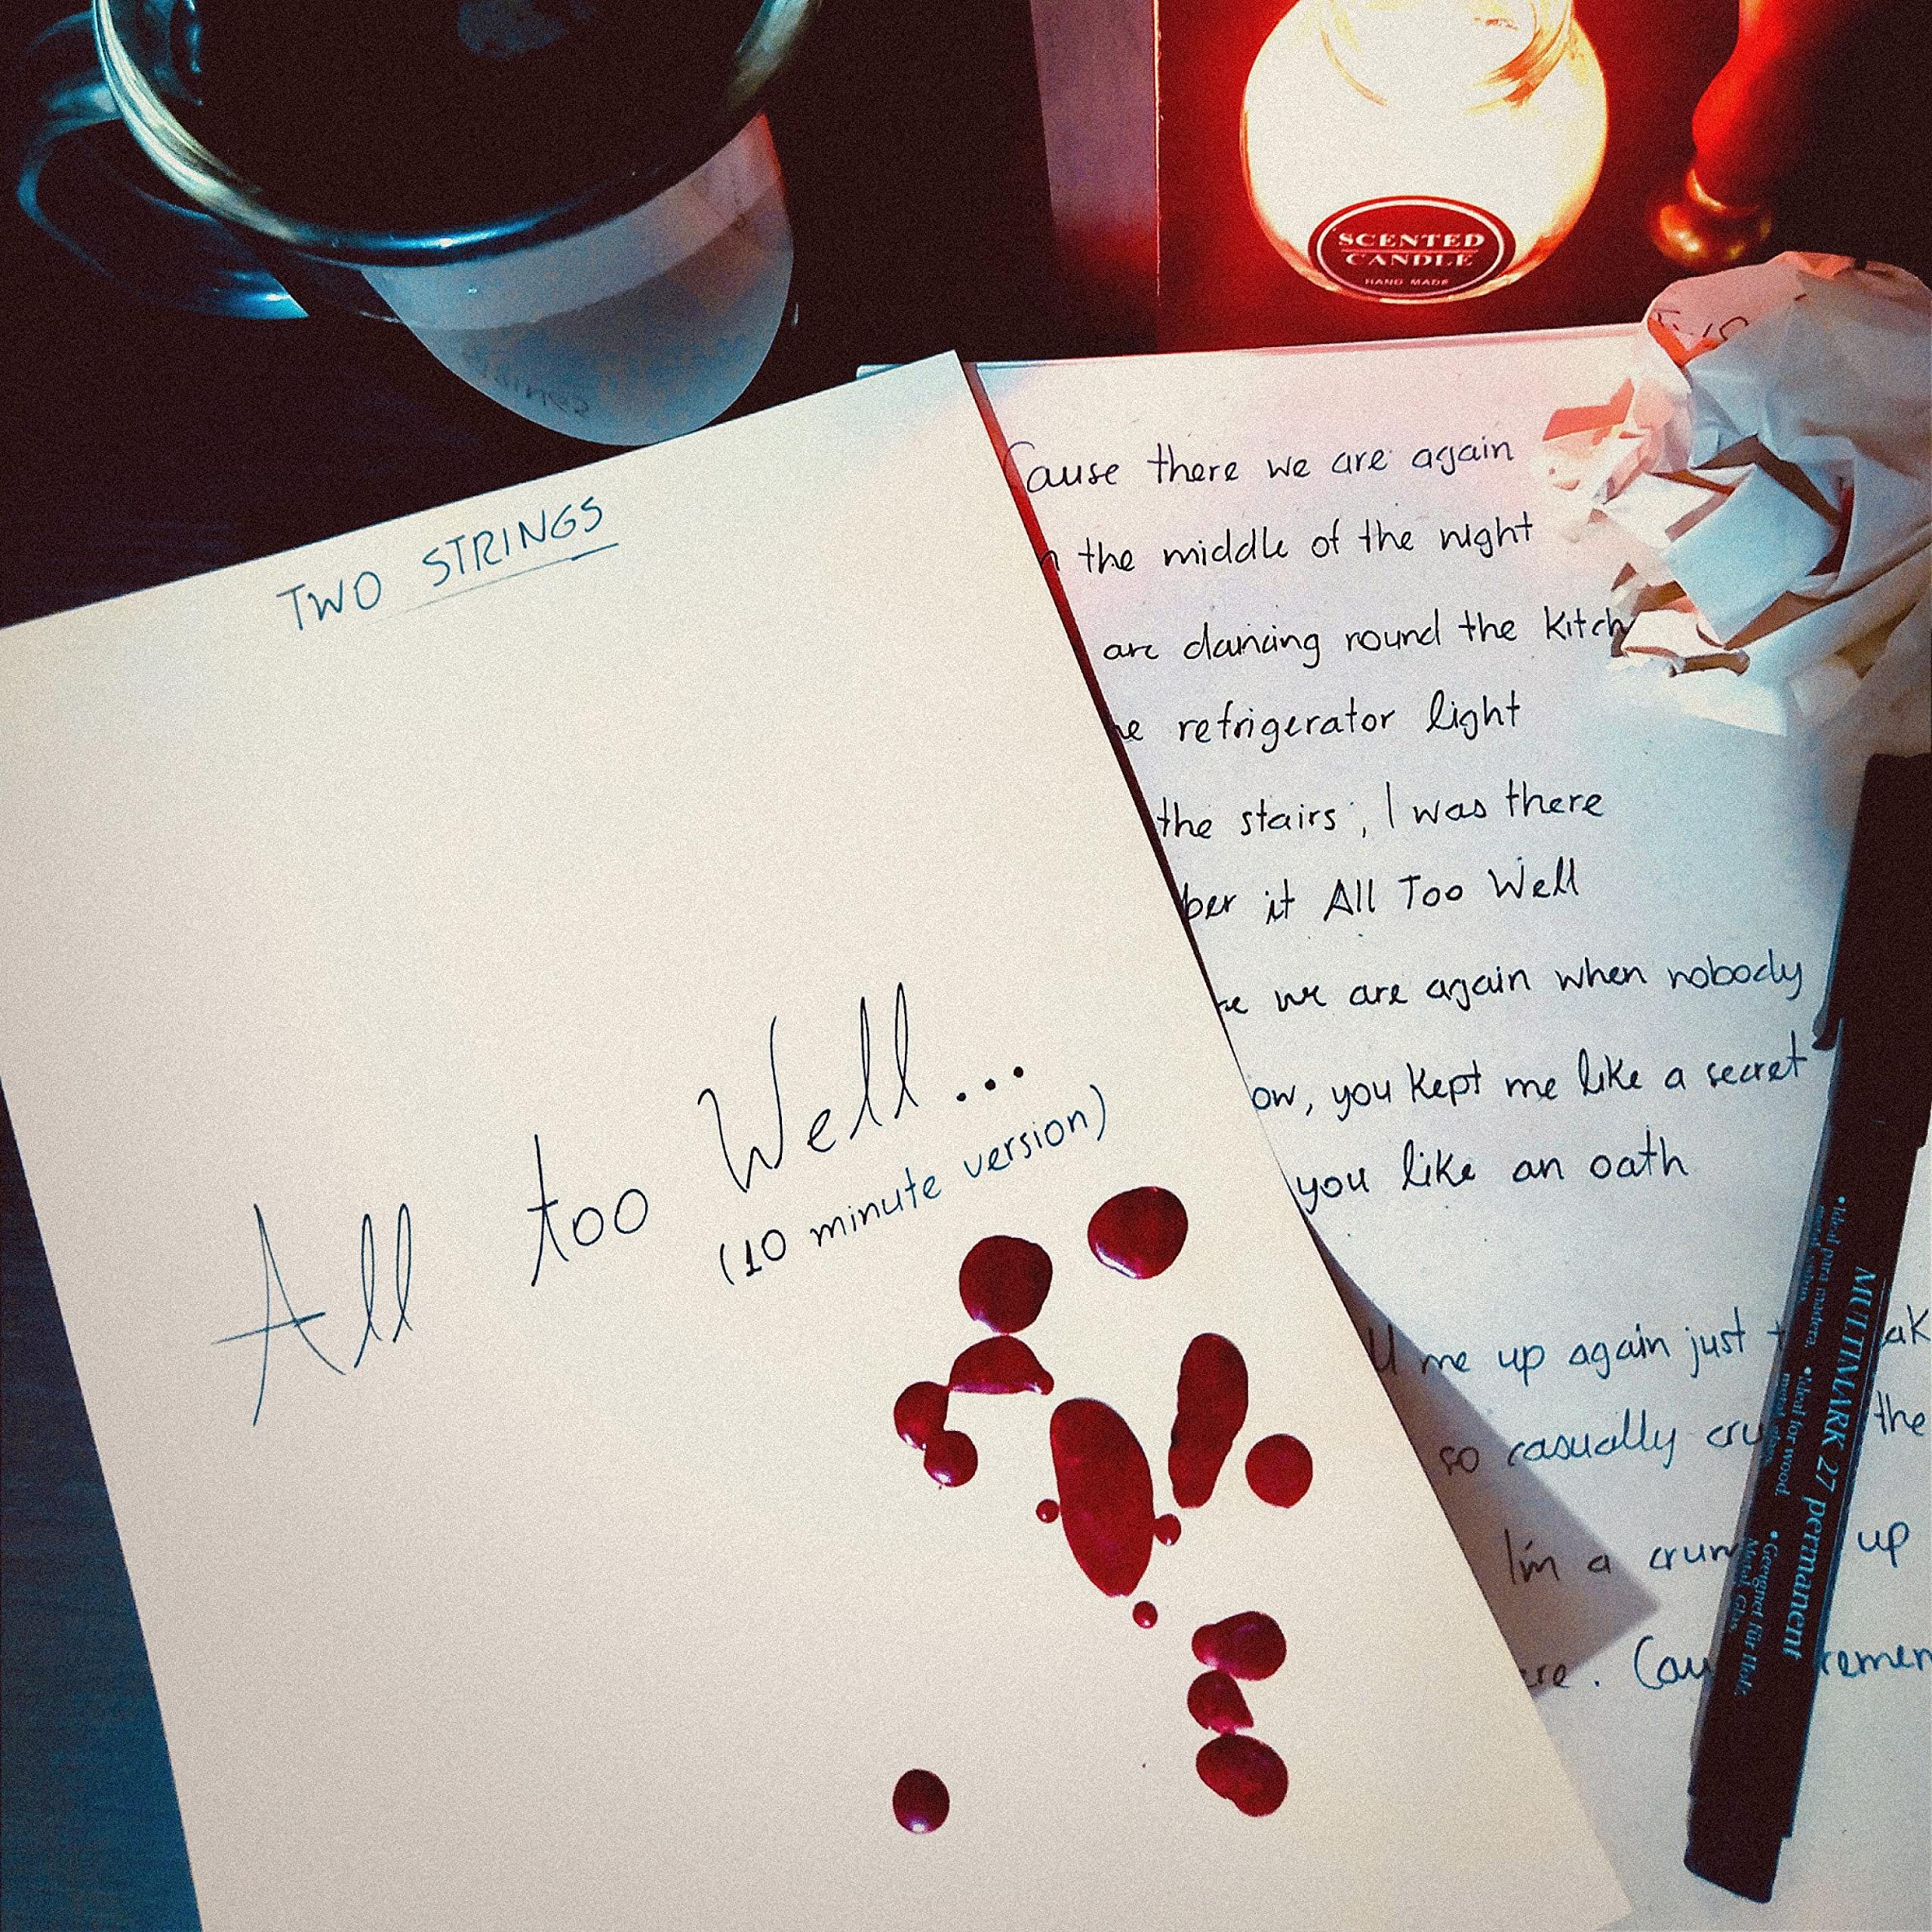 SCENTED
CANDLE
HAND MADE
TWO STRINGS
All too Well...
(10 minute version)
Cause there we are again
the middle of the night
are dancing round the kitch
refrigerator light
the stairs, I was there
ber it All Too Well
we are again when nobody
ow, you kept me like a secret
you like an oath
me up again just
so casually cru the
I'm a crum up
Cau remem
MULTIMARK 27 permanent
• Ideal para madera,
metal, vidrio.
• Ideal for wood,
metal, glass.
• Geeignet für Holz,
Metal, Glas.